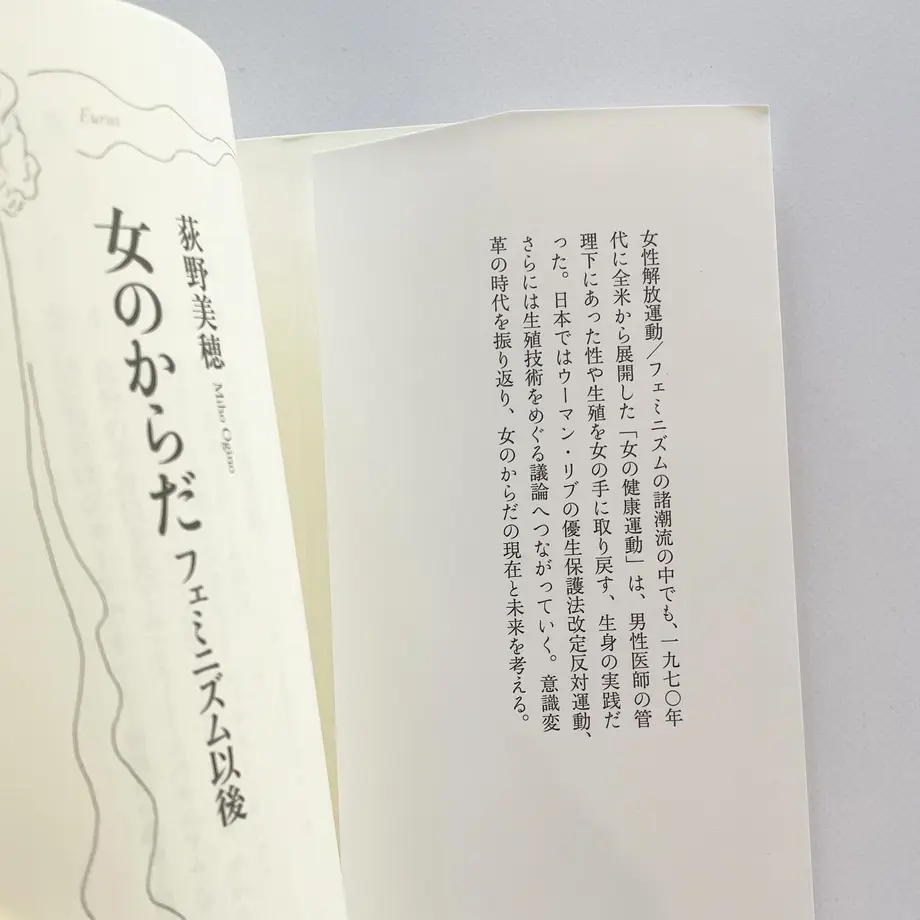 女性解放運動／フェミニズムの諸潮流の中でも、一九七〇年
代に全米から展開した「女の健康運動」は、男性医師の管
理下にあった性や生殖を女の手に取り戻す、生身の実践だ
った。日本ではウーマン・リブの優生保護法改定反対運動、
さらには生殖技術をめぐる議論へつながっていく。意識変
革の時代を振り返り、女のからだの現在と未来を考える。
荻野美穂 Miho Ogino
女のからだ フェミニズム以後
Eurus